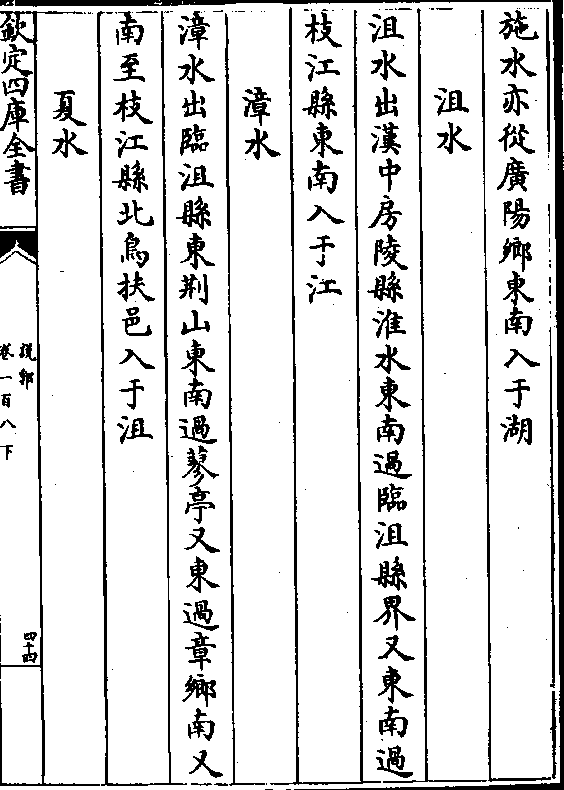 施水亦從廣陽鄉東南入于湖
沮水
沮水出漢中房陵縣淮水東南過臨沮縣界又東南過
枝江縣東南入于江
漳水
漳水出臨沮縣東荆山東南過蓼亭又東過章鄉南又
南至枝江縣北烏扶邑入于沮
夏水
欽定四庫全書
說郛
卷一百八下
四十四